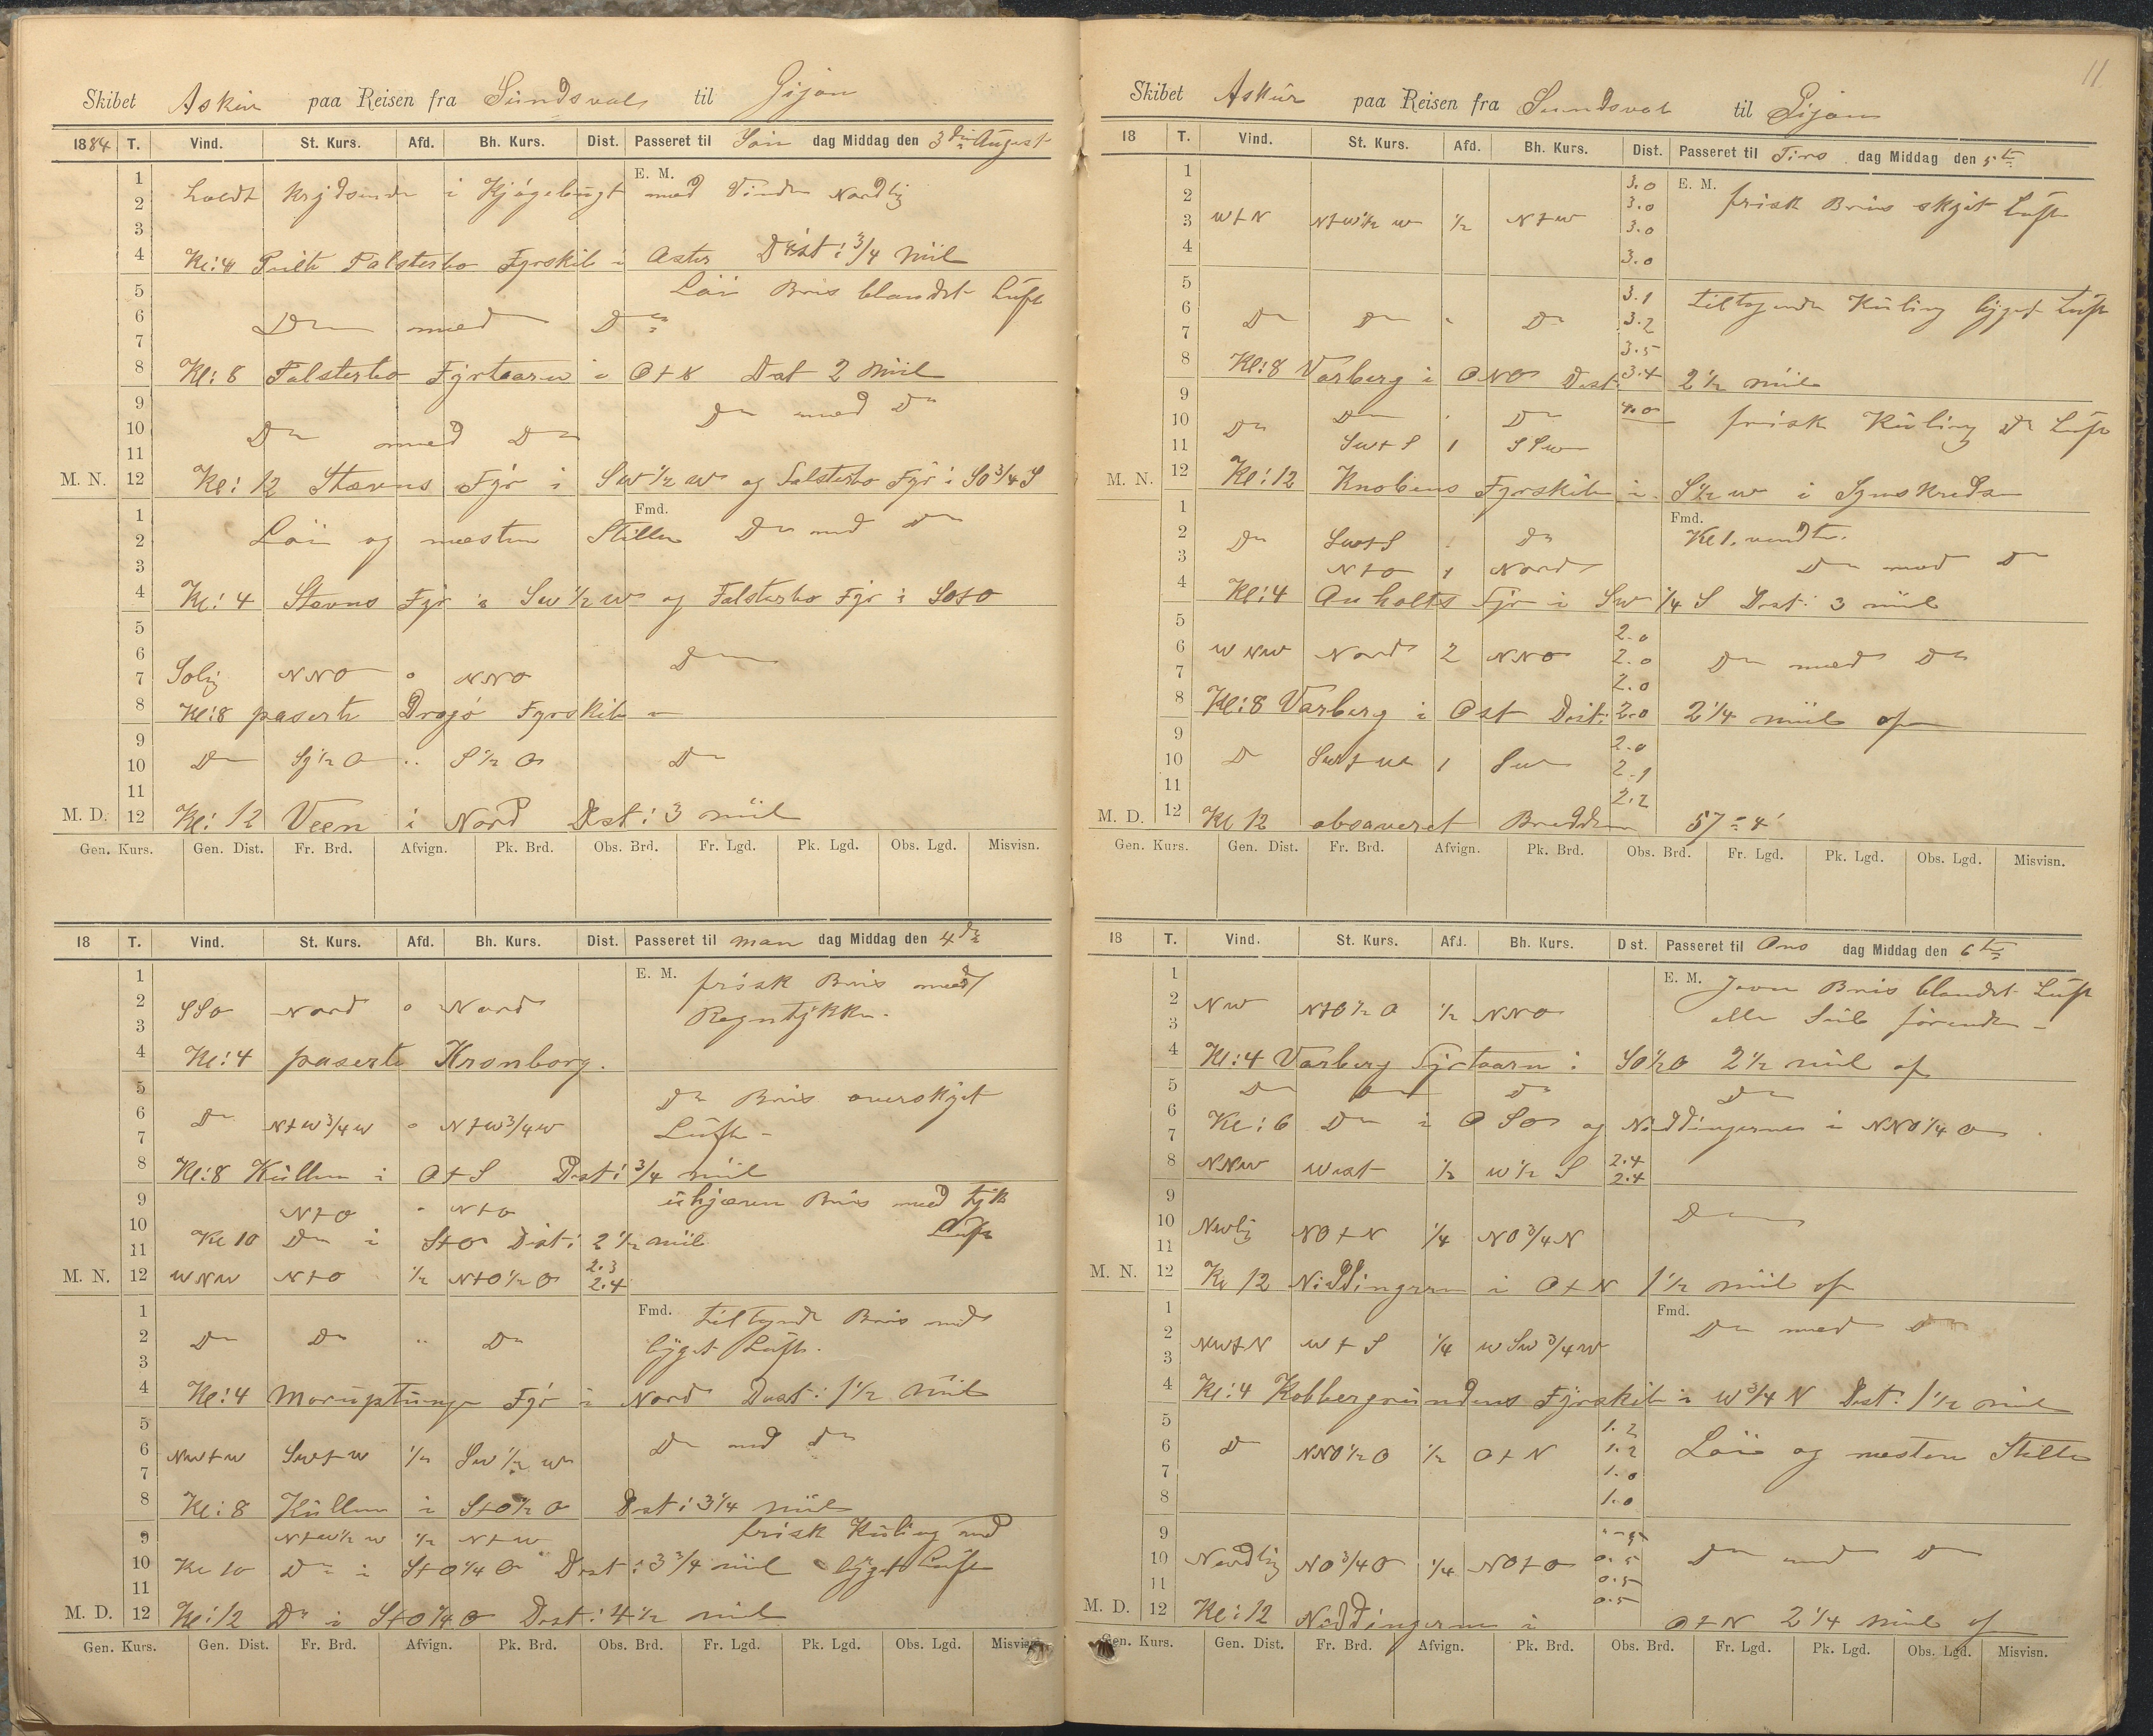 Skibet Askur paa Reisen fra Sundsval til Gijon
1884 T. Vind. St. Kurs. Afd. Bh. Kurs. Dist. Passeret til Søn dag Middag den 3die August
E. M.
1
2 holdt krydsende i Kjøgebugt med Vinden Nordlig
3
4 Kl: 4 Peilte Falsterbo Fyrskib i Oster Dist: 3/4 Miil
5 Løi Bris blandet Luft
6 Do med Do
7
8 Kl: 8 Falsterbo Fyrtaarn i O t S Dist 2 Miil
9 Do med Do
10 Do med Do
11
M. N. 12 Kl: 12 Stævns Fyr i SW 1/2 W og Falsterbo Fyr i SO 3/4 S
Fmd.
1
2 Løi og næsten Stille Do med Do
3
4 Kl: 4 Stævns Fyr i SW 1/2 W og Falsterbo Fyr i SOtO
5
6 Do
7 Solig NNO 0 NNO
8 Kl: 8 paserte Dragø Fyrskib
9
10 Do S 1/2 O " S 1/2 O Do
11
M. D. 12 Kl: 12 Veen i Nord Dist: 3 miil
Gen. Kurs. Gen. Dist. Fr. Brd. Afvign. Pk. Brd. Obs. Brd. Fr. Lgd. Pk. Lgd. Obs. Lgd. Misvisn.
18 T. Vind. St. Kurs. Afd. Bh. Kurs. Dist. Passeret til Man dag Middag den 4de
1 E. M. frisk Bris med
2 SSO Nord 0 Nord Regntykke.
3
4 Kl: 4 paserte Kronborg.
5 Do Bris overskyet
6 Do NtW 3/4 W 0 NtW 3/4 W
7 Luft
8 Kl: 8 Kullen i OtS Dist: 3/4 miil
9 NtO " NtO ukjæven Bris med tyk
10 Kl 10 Do i StO Dist: 2 1/2 miil Luft
11 2.3
M. N. 12 WNW NtO 1/2 NtO 1/2 O 2.4
1 Fmd. tiltagende Bris med
2 Do Do " Do
3 byget Luft.
4 Kl: 4 Moruptunge Fyr i Nord Dist: 1 1/2 Miil
5
6 NWtW SWtW 1/2 SW 1/2 W Do med Do
7
8 Kl: 8 Kullen i StO 1/2 O Dist: 3 1/4 miil
9 NtW 1/2 W 1/2 NtW frisk Kuling med
10 Kl 10 Do i StO 1/4 O Dist: 3 3/4 miil byget Luft
11
M. D. 12 Kl: 12 Do i StO 1/4 O Dist: 4 1/2 miil
Gen. Kurs. Gen. Dist. Fr. Brd. Afvign. Pk. Brd. Obs. Brd. Fr. Lgd. Pk. Lgd. Obs. Lgd. Misvisn.
11
Skibet Askur paa Reisen fra Sundsval til Gijon
18 T. Vind. St. Kurs. Afd. Bh. Kurs. Dist. Passeret til Tirs dag Middag den 5te
1 3.0 E. M.
2 3.0 frisk Bris skyet Luft
3 WtN NtW 1/2 W 1/2 NtW 3.0
4 3.0
5 3.1 tiltagende Kuling byget Luft
6 Do Do " Do 3.2
7 3.5
8 Kl: 8 Varberg i ONO Dist: 3.4 2 1/2 miil
9 Do Do 4.0
10 Do frisk Kuling Do Luft
11 SWtS 1 SSW
M. N. 12 Kl: 12 Knobens Fyrskib i S 1/2 W i Synskreds
1 Fmd.
2 Do SWtS Do Kl 1. vendte.
3 NtO 1 Nord Do med Do
4 Kl: 4 Anholts Fyr i SW 1/4 S Dist: 3 miil
5 2.0
6 WNW Nord 2 NNO 2.0 Do med Do
7 2.0
8 Kl: 8 Varberg i Ost Dist: 2.0 2 1/4 miil af
9 2.0
10 Do SWtW 1 SW 2.1
11 2.2
M. D. 12 Kl 12 obsaveret Bredden 57° 4'
Gen. Kurs. Gen. Dist. Fr. Brd. Afvign. Pk. Brd. Obs. Brd. Fr. Lgd. Pk. Lgd. Obs. Lgd. Misvisn.
18 T. Vind. St. Kurs. Afd. Bh. Kurs. Dist. Passeret til Ons dag Middag den 6te
1 E. M. Jevn Bris blandet Luft
2 NW NtO 1/2 O 1/2 NNO alle Seil førende
3
4 Kl: 4 Varberg Fyrtaarn i SO 1/2 O 2 1/2 miil af
5 Do Do Do Do
6 Kl: 6 Do i OSO og Niddingerne i NNO 1/4 O
7
8 NNW West 1/2 W 1/2 S 2.4
2.4
9
10 NWlig NOtN 1/4 NO 3/4 N Do
11
M. N. 12 Kl 12 Niddingerne i OtN 1 1/2 miil af
1 Fmd.
2 NWtN WtS 1/4 WSW 3/4 W Do med Do
3
4 Kl: 4 Kobbergrundens Fyrskib i W 3/4 N Dist: 1 1/2 miil
5 1.2
6 Do NNO 1/2 O 1/2 OtN 1.2 Løi og næsten Stille
7 1.0
8 1.0
9
10 Nordlig NO 3/4 O 1/4 NOtO 0.5 Do med Do
11 0.5
0.5
M. D. 12 Kl: 12 Niddingerne i OtN 2 1/4 miil af
Gen. Kurs. Gen. Dist. Fr. Brd. Afvign. Pk. Brd. Obs. Brd. Fr. Lgd. Pk. Lgd. Obs. Lgd. Misvisn.